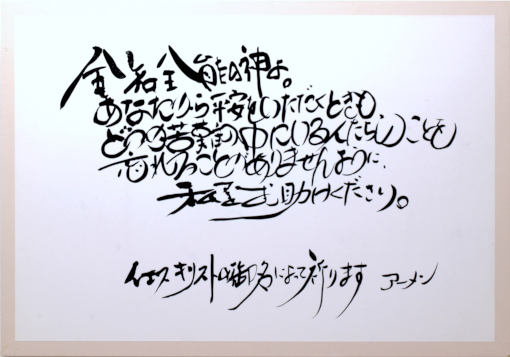 全知全能の神よ。
あなたから平安をいただくときも
苦難の中にいる人たちのことを
忘れることがありませんように、
助けください。
イエスキリストの御名によって祈ります アーメン